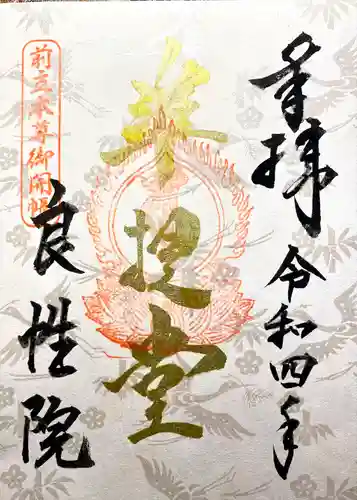 奉拝 令和四年
菩提堂
良性院
前立本尊御開帳